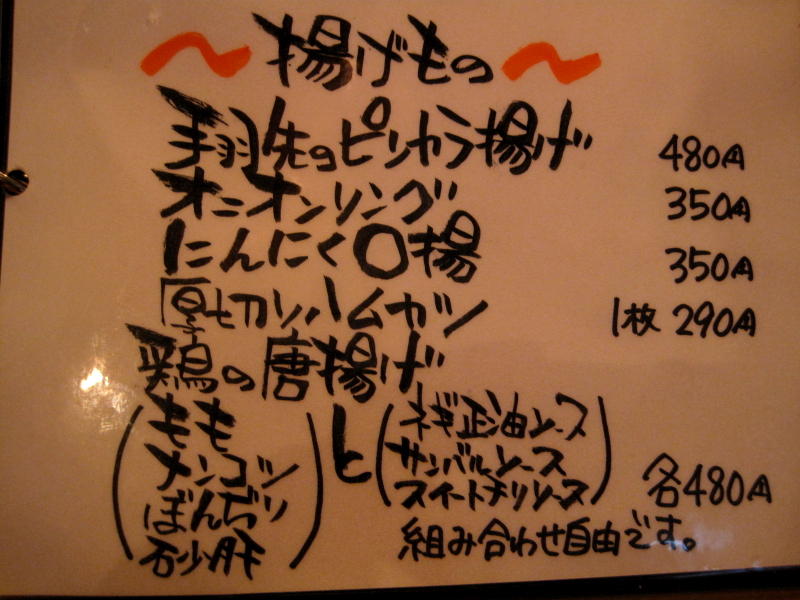 ～揚げもの～
手羽先のピリカラ揚げ 480円
オニオンリング 350円
にんにく〇揚 350円
厚切りハムカツ 1枚 290円
鶏の唐揚げ
もも
メンコツ
ぼんぢり
砂肝
と
ネギ正油ソース
サンバルソース
スイートチリソース
各480円
組み合わせ自由です。